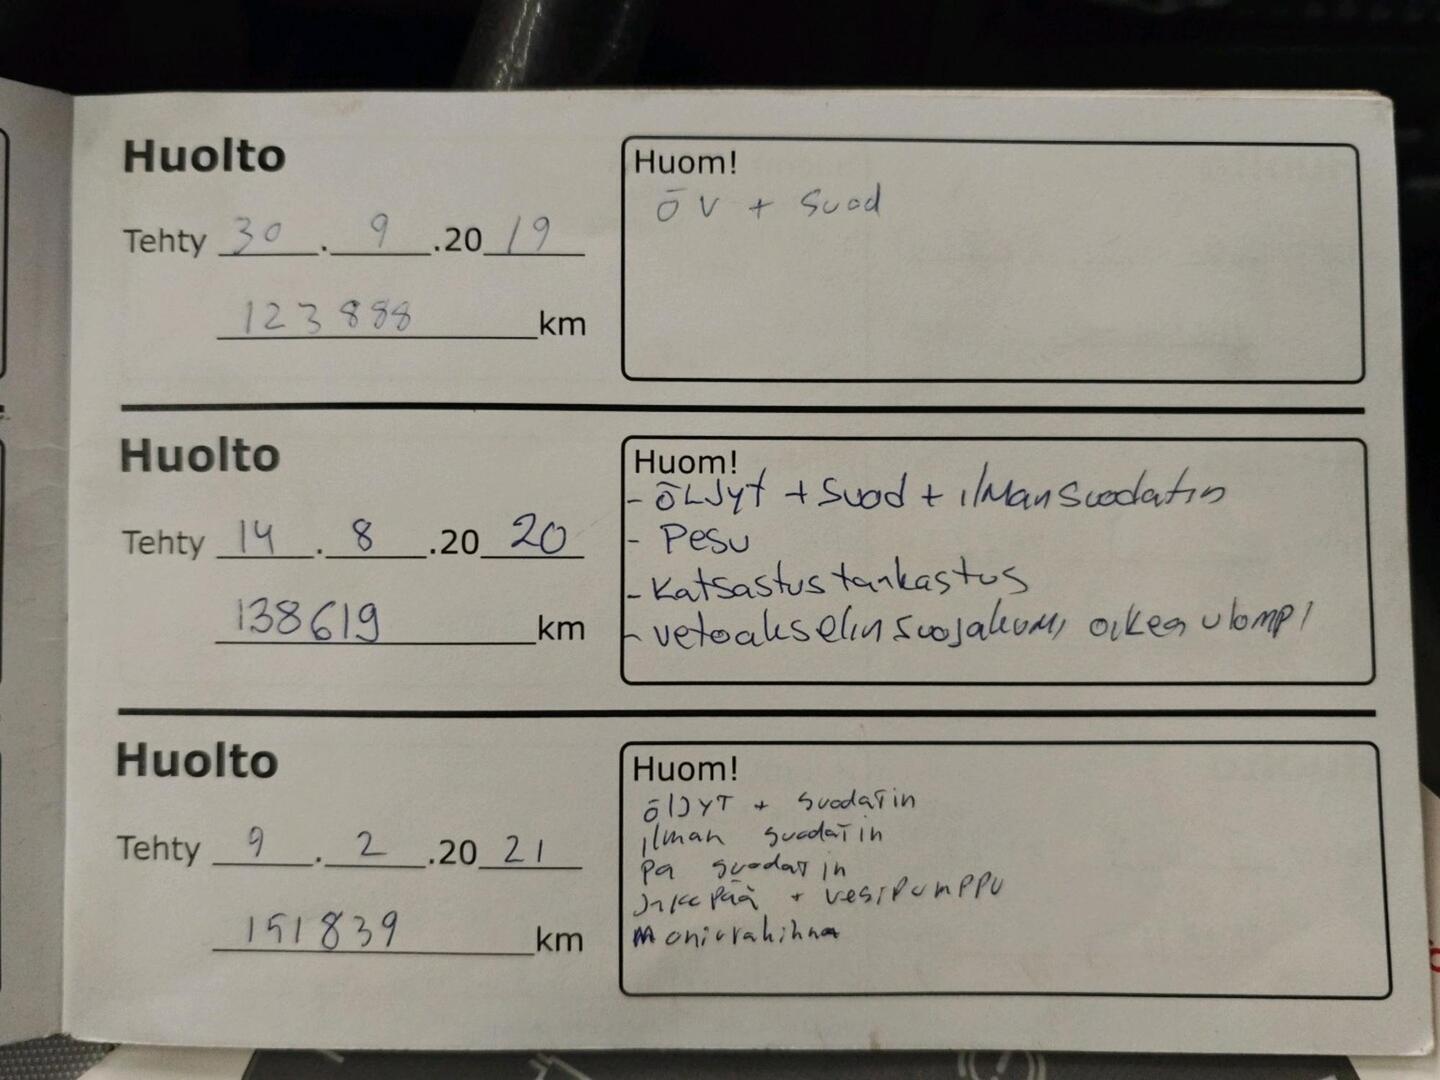 Huolto
Tehty 30.9.2019
123888 km
Huom!
ÖV + Suod
Huolto
Tehty 14.8.2020
138619 km
Huom!
- ÖLJyt + Suod + ilmansuodatin
- Pesu
- Katsastustarkastus
- vetoakselin suojakumi oikea ulompi
Huolto
Tehty 9.2.2021
151839 km
Huom!
öljyT + suodaTin
ilman suodaTin
pa suodaTin
+ vesipumppu
Moniurahihna